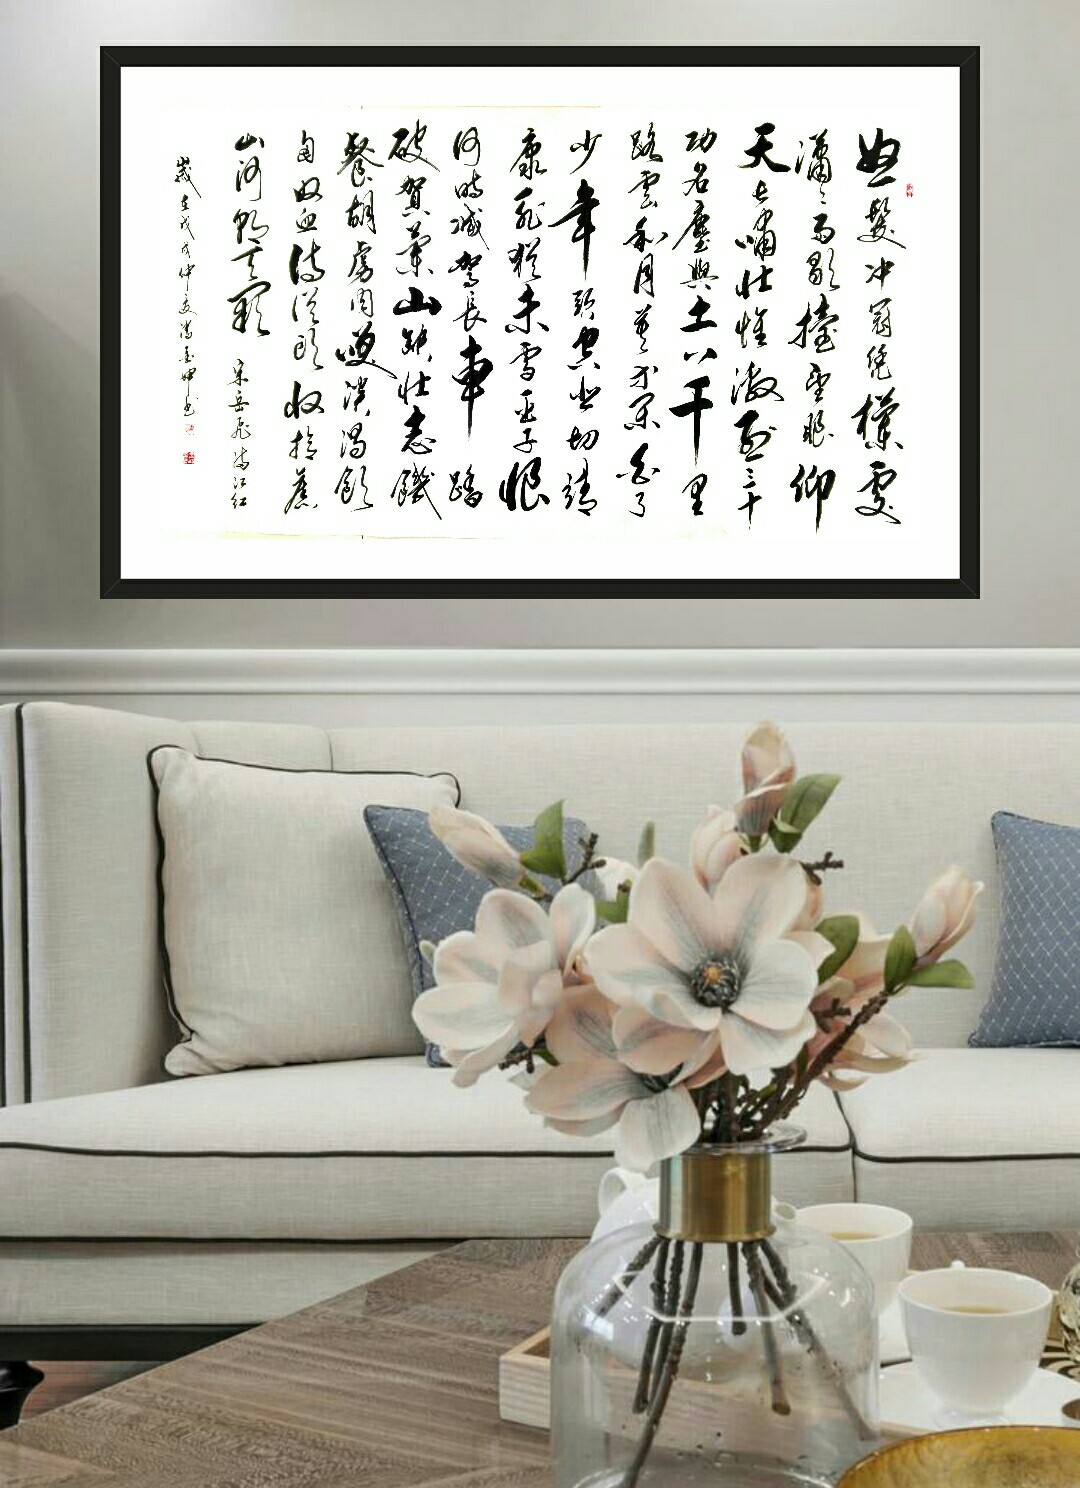 怒髮冲冠凭欄處
瀟瀟雨歇擡望眼仰
天長嘯壯懷激烈三十
功名塵與土八千里
路雲和月莫等閑白了
少年頭空悲切靖
康恥猶未雪臣子恨
何時滅駕長車踏
破賀蘭山缺壯志饑
餐胡虜肉笑談渴飲
匈奴血待從頭收拾舊
山河朝天闕 宋岳飛滿江紅
歲在戊戌 仲夏 書